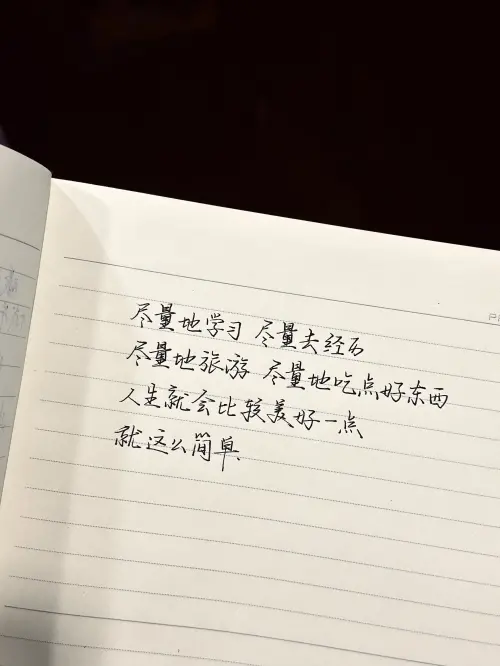 尽量地学习 尽量去经历
尽量地旅游 尽量地吃点好东西
人生就会比较美好一点
就这么简单.